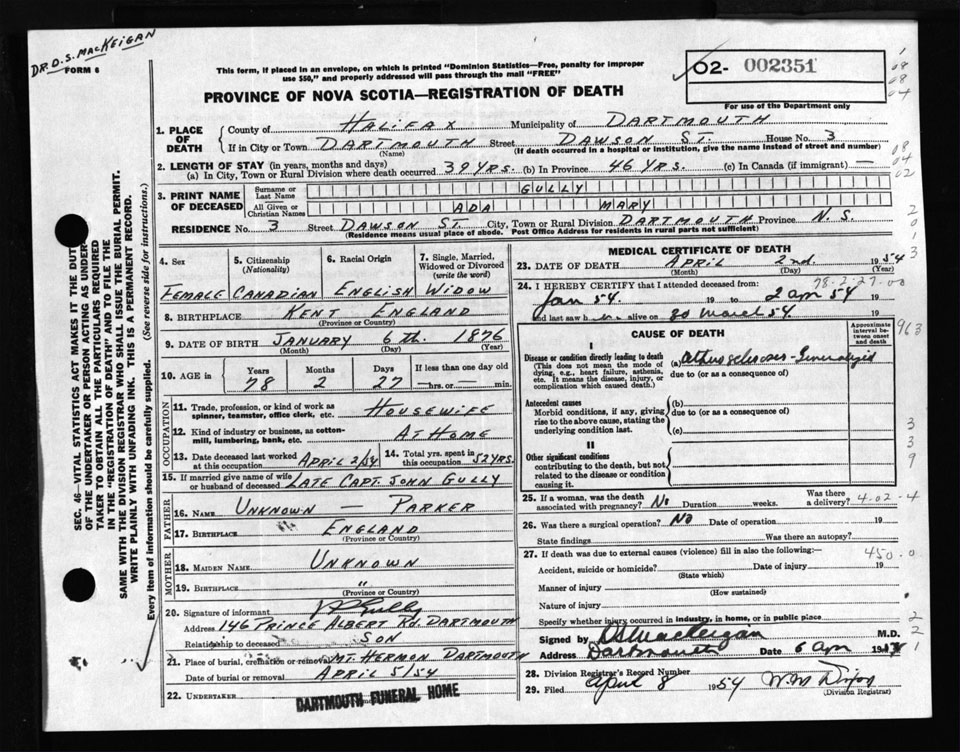 DR. D.S. MacKEIGAN
FORM 6
This form, if placed in an envelope, on which is printed "Dominion Statistics—Free, penalty for improper
use $50," and properly addressed will pass through the mail "FREE"
02- 002351
For use of the Department only
PROVINCE OF NOVA SCOTIA—REGISTRATION OF DEATH
SEC. 46—VITAL STATISTICS ACT MAKES IT THE DUTY
OF THE UNDERTAKER OR PERSON ACTING AS UNDER-
TAKER TO OBTAIN ALL THE PARTICULARS REQUIRED
IN THE "REGISTRATION OF DEATH" AND TO FILE THE
SAME WITH THE DIVISION REGISTRAR WHO SHALL ISSUE THE BURIAL PERMIT.
WRITE PLAINLY WITH UNFADING INK. THIS IS A PERMANENT RECORD.
Every item of information should be carefully supplied. (See reverse side for instructions.)
1. PLACE OF DEATH
County of HALIFAX Municipality of DARTMOUTH
If in City or Town DARTMOUTH Street DAWSON ST. House No. 3
(Name) (If death occurred in a hospital or institution, give the name instead of street and number)
2. LENGTH OF STAY (in years, months and days)
(a) In City, Town or Rural Division where death occurred 39 YRS. (b) In Province 46 YRS. (c) In Canada (if immigrant) —
3. PRINT NAME OF DECEASED
Surname or Last Name GULLY
All Given or Christian Names ADA MARY
RESIDENCE No. 3 Street DAWSON ST. City, Town or Rural Division DARTMOUTH Province N.S.
(Residence means usual place of abode. Post Office Address for residents in rural parts not sufficient)
4. Sex
FEMALE
5. Citizenship (Nationality)
CANADIAN
6. Racial Origin
ENGLISH
7. Single, Married, Widowed or Divorced (write the word)
WIDOW
8. BIRTHPLACE KENT ENGLAND
(Province or Country)
9. DATE OF BIRTH JANUARY 6th. 1876
(Month) (Day) (Year)
10. AGE in Years Months Days If less than one day old
78 2 27 —hrs. or —min.
OCCUPATION
11. Trade, profession, or kind of work as spinner, teamster, office clerk, etc. HOUSEWIFE
12. Kind of industry or business, as cotton-mill, lumbering, bank, etc. AT HOME
13. Date deceased last worked at this occupation APRIL 2/54
14. Total yrs. spent in this occupation 52 YRS.
15. If married give name of wife or husband of deceased LATE CAPT. JOHN GULLY
FATHER
16. NAME UNKNOWN — PARKER
17. BIRTHPLACE ENGLAND
(Province or Country)
MOTHER
18. MAIDEN NAME UNKNOWN
19. BIRTHPLACE "
(Province or Country)
20. Signature of informant Gully
Address 146 PRINCE ALBERT RD. DARTMOUTH
Relationship to deceased SON
21. Place of burial, cremation or removal MT. HERMON DARTMOUTH
Date of burial or removal APRIL 5/54
22. UNDERTAKER DARTMOUTH FUNERAL HOME
MEDICAL CERTIFICATE OF DEATH
23. DATE OF DEATH APRIL 2nd. 1954
(Month) (Day) (Year)
78-2-27-00
24. I HEREBY CERTIFY that I attended deceased from:
Jan 54. 19 to 2 am 54 19
and last saw h alive on 30 March 54. 19
CAUSE OF DEATH
Approximate interval between onset and death
I
Disease or condition directly leading to death (a) Arthrosclerosis - Generalized
(This does not mean the mode of dying, e.g., heart failure, asthenia, etc. It means the disease, injury, or complication which caused death.)
due to (or as a consequence of)
Antecedent causes (b)
Morbid conditions, if any, giving rise to the above cause, stating the underlying condition last.
due to (or as a consequence of)
(c)
II
Other significant conditions
contributing to the death, but not related to the disease or condition causing it.
25. If a woman, was the death associated with pregnancy? No Duration weeks. Was there a delivery? 4-02-4
26. Was there surgical operation? No Date of operation 19
State findings Was there an autopsy?
27. If death was due to external causes (violence) fill in also the following:— 450-0
Accident, suicide or homicide? Date of injury 19
(State which)
Manner of injury
(How sustained)
Nature of injury
Specify whether injury occurred in industry, in home, or in public place
Signed by DS MacKeigan M.D.
Address Dartmouth Date 6 Apr 1954
28. Division Registrar's Record Number
29. Filed April 8 1954 W.M. Dixon
(Division Registrar)
08
08
04
08
04
02
2
0
1
3
963
3
3
9
2
2
1